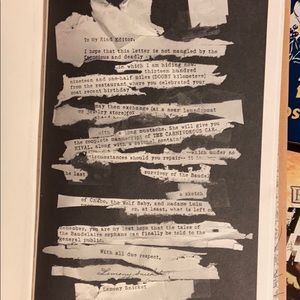 To My Kind Editor,
I hope that this letter is not mangled by the
ferocious and deadly
in which I am hiding now.
thirteen hundred
nineteen and one-half miles (DOUBT kilometers)
from the restaurant where you celebrated your
most recent birthday.
may then exchange (at a near laundromat
or jewelry store) for
with a long mustache. She will give you
the complete manuscript of THE CARNIVOROUS CAR-
NIVAL, along with a
which under no
circumstances should you repair
the last
survivor of the Baudel
a sketch
of Chabo, the Wolf Baby, and Madame Lulu
or, at least, what is left
Remember, you are my last hope that the tales of
the Baudelaire orphans can finally be told to the
general public.
With all due respect,
Lemony Snicket
Lemony Snicket